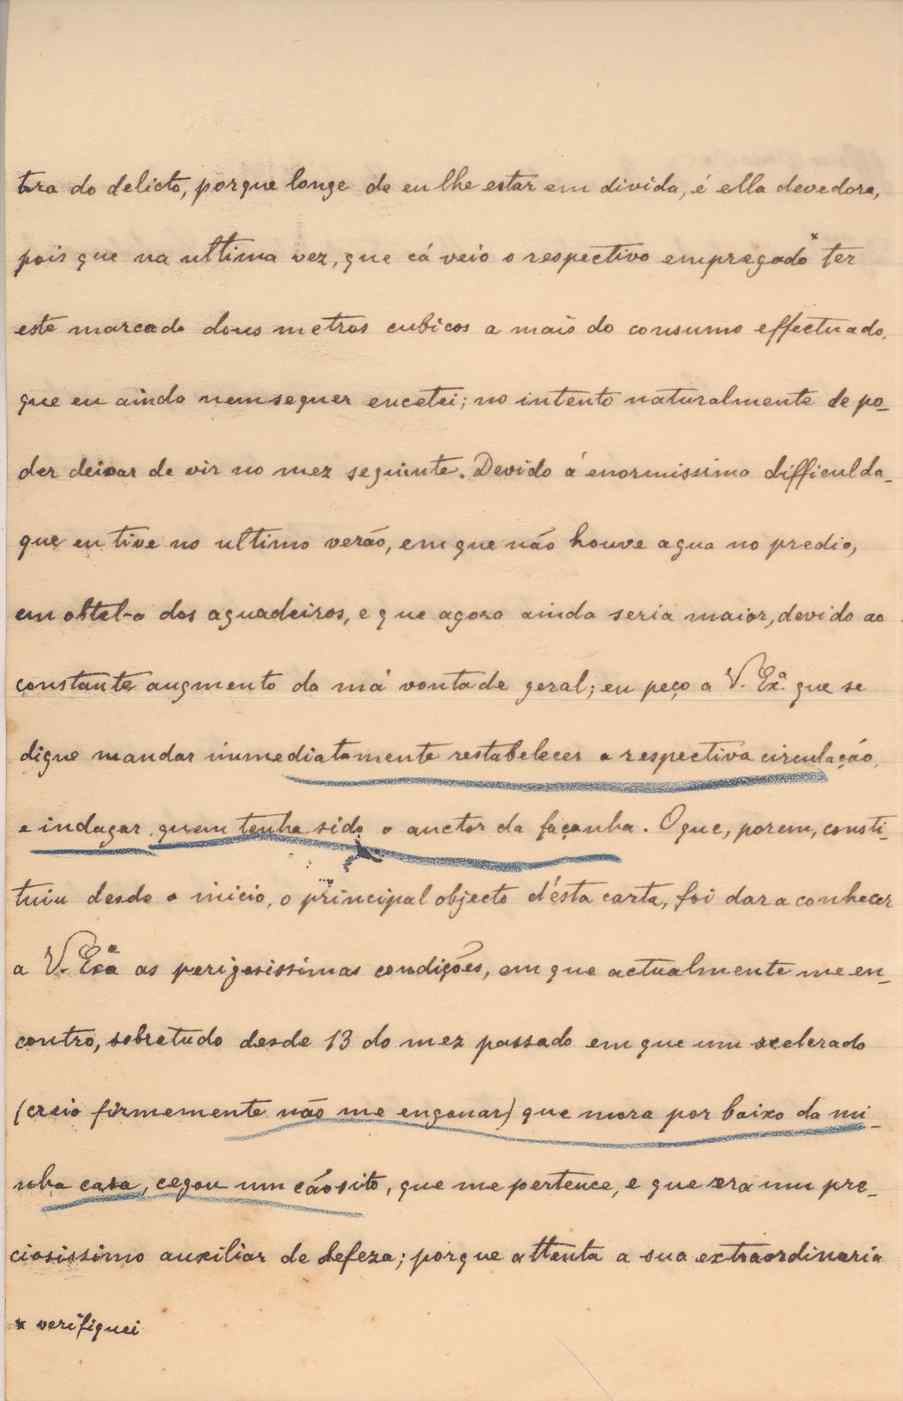 tora do delicto, porque longe de eu lhe estar em divida, é ella devedora,
pois que na ultima vez, que cá veio o respectivo empregado* ter
este marcado dous metros cubicos a mais do consumo effectuado,
que eu ainda nem sequer encetei; no intento naturalmente de po-
der deixar de vir no mez seguinte. Devido á enormissima difficulda-
que eu tive no ultimo verão, em que não houve agua no predio,
em obtel-a dos aguadeiros, e que agora ainda seria maior, devido ao
constante augmento da má vontade geral; eu peço a V. Exª. que se
digne mandar immediatamente restabelecer a respectiva circulação,
e indagar quem tenha sido o auctor da façanha. O que, porem, consti-
tuiu desde o inicio, o principal objecto d'ésta carta, foi dar a conhecer
a V. Exª as perigosissimas condições, em que actualmente me en-
contro, sobretudo desde 13 do mez passado em que um scelerado
(creio firmemente não me enganar) que mora por baixo da mi-
nha casa, cegou um cãosito, que me pertence, e que era um pre-
ciosissimo auxiliar de defeza; porque attenta a sua extraordinaria
* verifiquei